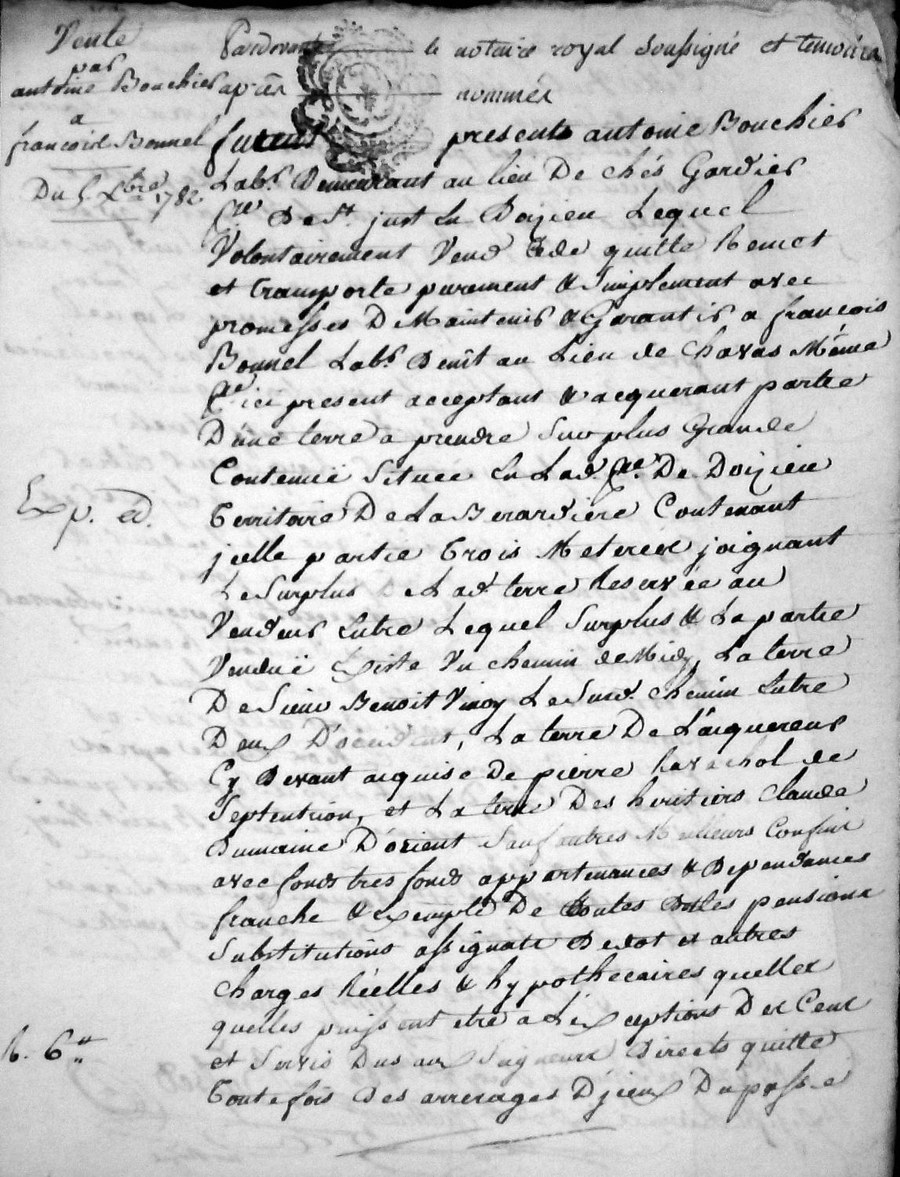 Vente
par
antoine Bouchier
a
francois Bonnel
Du 5 Xbre 1782
Pardevant le notaire royal soussigné et temoins
après nommés
furent presents antoine Bouchier
Labr. Demeurant au lieu De chés Gardier
Psse De St. just En Doizieu Lequel
Volontairement Vend Cede quitte Remet
et transporte purement & simplement avec
promesses De Maintenir & Garantir a francois
Bonnel Labr. Denît au Lieu de Chavas Même
Psse ici present acceptant & acquerant partie
Dune terre a prendre Sur plus Grande
Contenuë Située En Lad. Psse De Doizieu
Territoire De La Berardiere Contenant
jcelle partie Trois Meterees joignant
Le Surplus De Lad. terre Reservée au
Vendeur Entre Lequel Surplus & La partie
Venduë Existe Un chemin de Midy, La terre
De Sieur Benoit Vinoy Le Susd. chemin Entre
Deux D'occident, La terre De L'aquereur
Cy Devant acquise De pierre Ravachol de
Septentrion, et La terre Des heritiers Claude
Dumaine D'orient Sauf autres Meilleurs Confins
avec fonds tres fonds appartenances & Dependances
franche & Exempte De toutes Dettes pensions
Substitutions assignats De dot et autres
Charges Réelles & hypothecaires quelles
quelles puissent etre a L'Exceptions Des Cens
et Servis Dus aux Seigneurs Directs quitte
Toute fois Des arrerages D'jceux Du passé
Exp. ed.
R. 6"